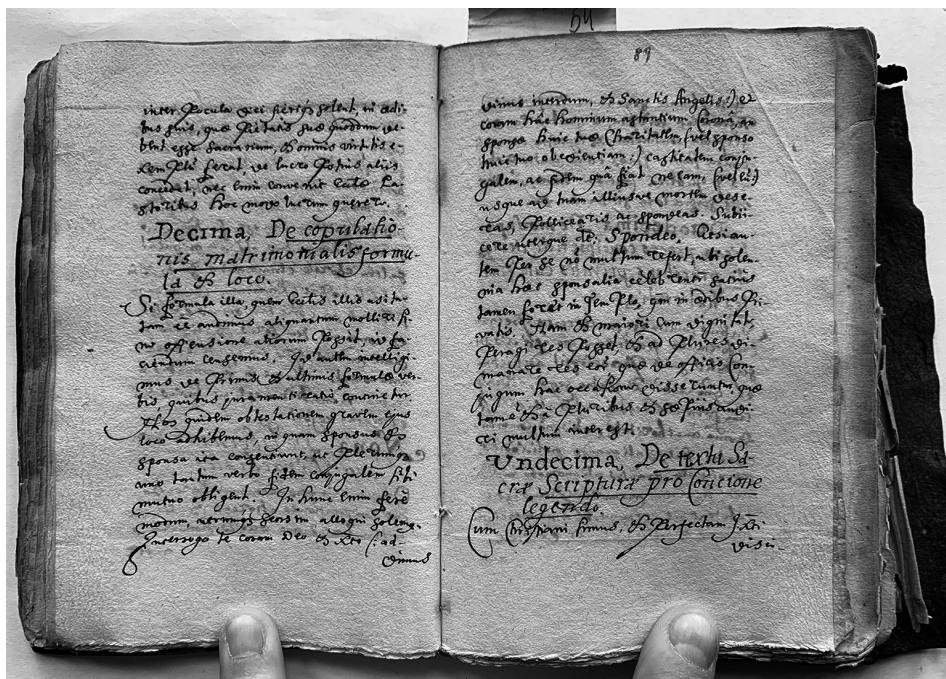 inter pocula vei fieri solent, in ædi-
bus suis, quæ pietatis suæ quoddam de-
bent esse sacrarium, et omnis virtutis e-
xempla ferat, ut lucro potius aliis
concedat, nec enim convenit Eccle. Pa-
storibus hoc modo lucrum quærere.
Decima, De copulatio-
nis matrimonialis formu-
la et loco.
Si formula illa, quem Ecclis illis usita-
tam aliquantum molliri si-
ne offensione aliorum possit, id fa-
ciendum censemus. Id autem intelligi-
mus de primis et ultimis formulæ ver-
bis quibus juramenti ratio continetur.
Nos quidem obtestationem gravem ejus
loco adhibemus, in quam sponsus et
sponsa ita consentiunt, ut plerumque
uno tantum verbo fidem conjugalem sibi
mutuo obligent. In hunc enim fere
modum, utrumque seorsim alloqui solemus.
Interrogo te coram Deo et Xto (: ad-
dimus
54
89
dimus interdum, et Sanctis Angelis :) et
coram hac hominum astantium corona, an
sponsæ huic tuæ Charitatem, (vel sponso
huic tuo obedientiam :) castitatem conju-
galem, ac fidem
usque ad tuam illiusve mortem
pollicearis ac spondeas. Subii-
cere uterque de: Spondeo. Etsi au-
tem per se no multum refert, ubi solen-
nia hæc sponsalia celebrentur satius
tamen foret in Templo, qm in ædibus pri-
vatis. Nam et maiori cum dignitate
peragi res posset et ad plures
manare res est quæ de officio con-
jugum hac occasione disseruntur quæ
tamē et a pluribus et sæpius audi-
ri multum interest.
Undecima, De textu Sa-
cræ Scripturæ pro concione
legendo.
Cum Christiani simus, et perfectam
disci-